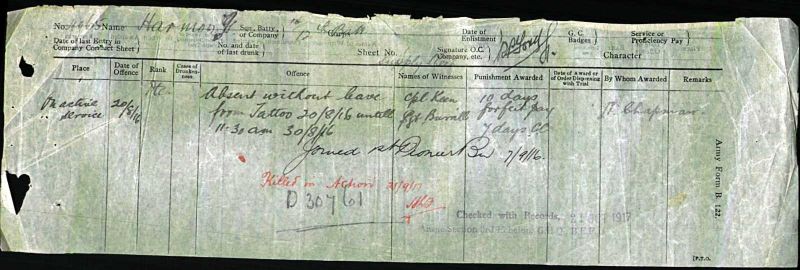 No. Name Harmon J Sqn., Batty., or Company Corps Date of Enlistment G. C. Badges Service or Proficiency Pay
Date of last Entry in Company Conduct Sheet No. and date of last drunk Sheet No. Signature O.C. Company, etc. Character
Place Date of Offence Rank Cases of Drunkenness Offence Names of Witnesses Punishment Awarded Date of Award or of Order Dispensing with Trial By Whom Awarded Remarks
On active service 20/8/16 Pte Absent without leave Cpl Keen 10 days
from Tattoo 20/8/16 untill Sgt Burrall forfeit pay Chapman
11.30 am 30/8/16 7 days CC
Joined 1st Pioneer Bn 7/9/16.
Killed in Action 21/9/17
D 30761
Checked with Records, 1917
Section 3rd Echelon G.H.Q. B.E.F.
Army Form B. 122.
[P.T.O.